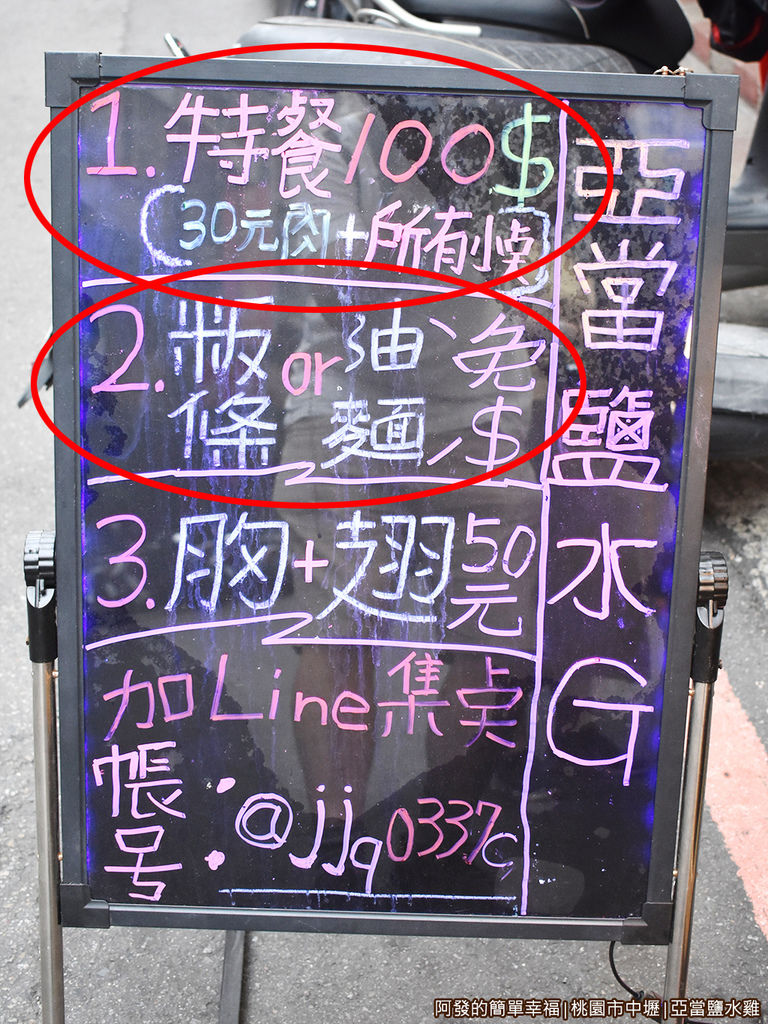 1.特餐100$
(30元肉+所有小点)
2.粄條or油麵 免$
3.胸+翅50元
加Line集点
帳号:@jjq0337c
亞當鹽水G
阿發的簡單幸福|桃園市中壢|亞當鹽水雞